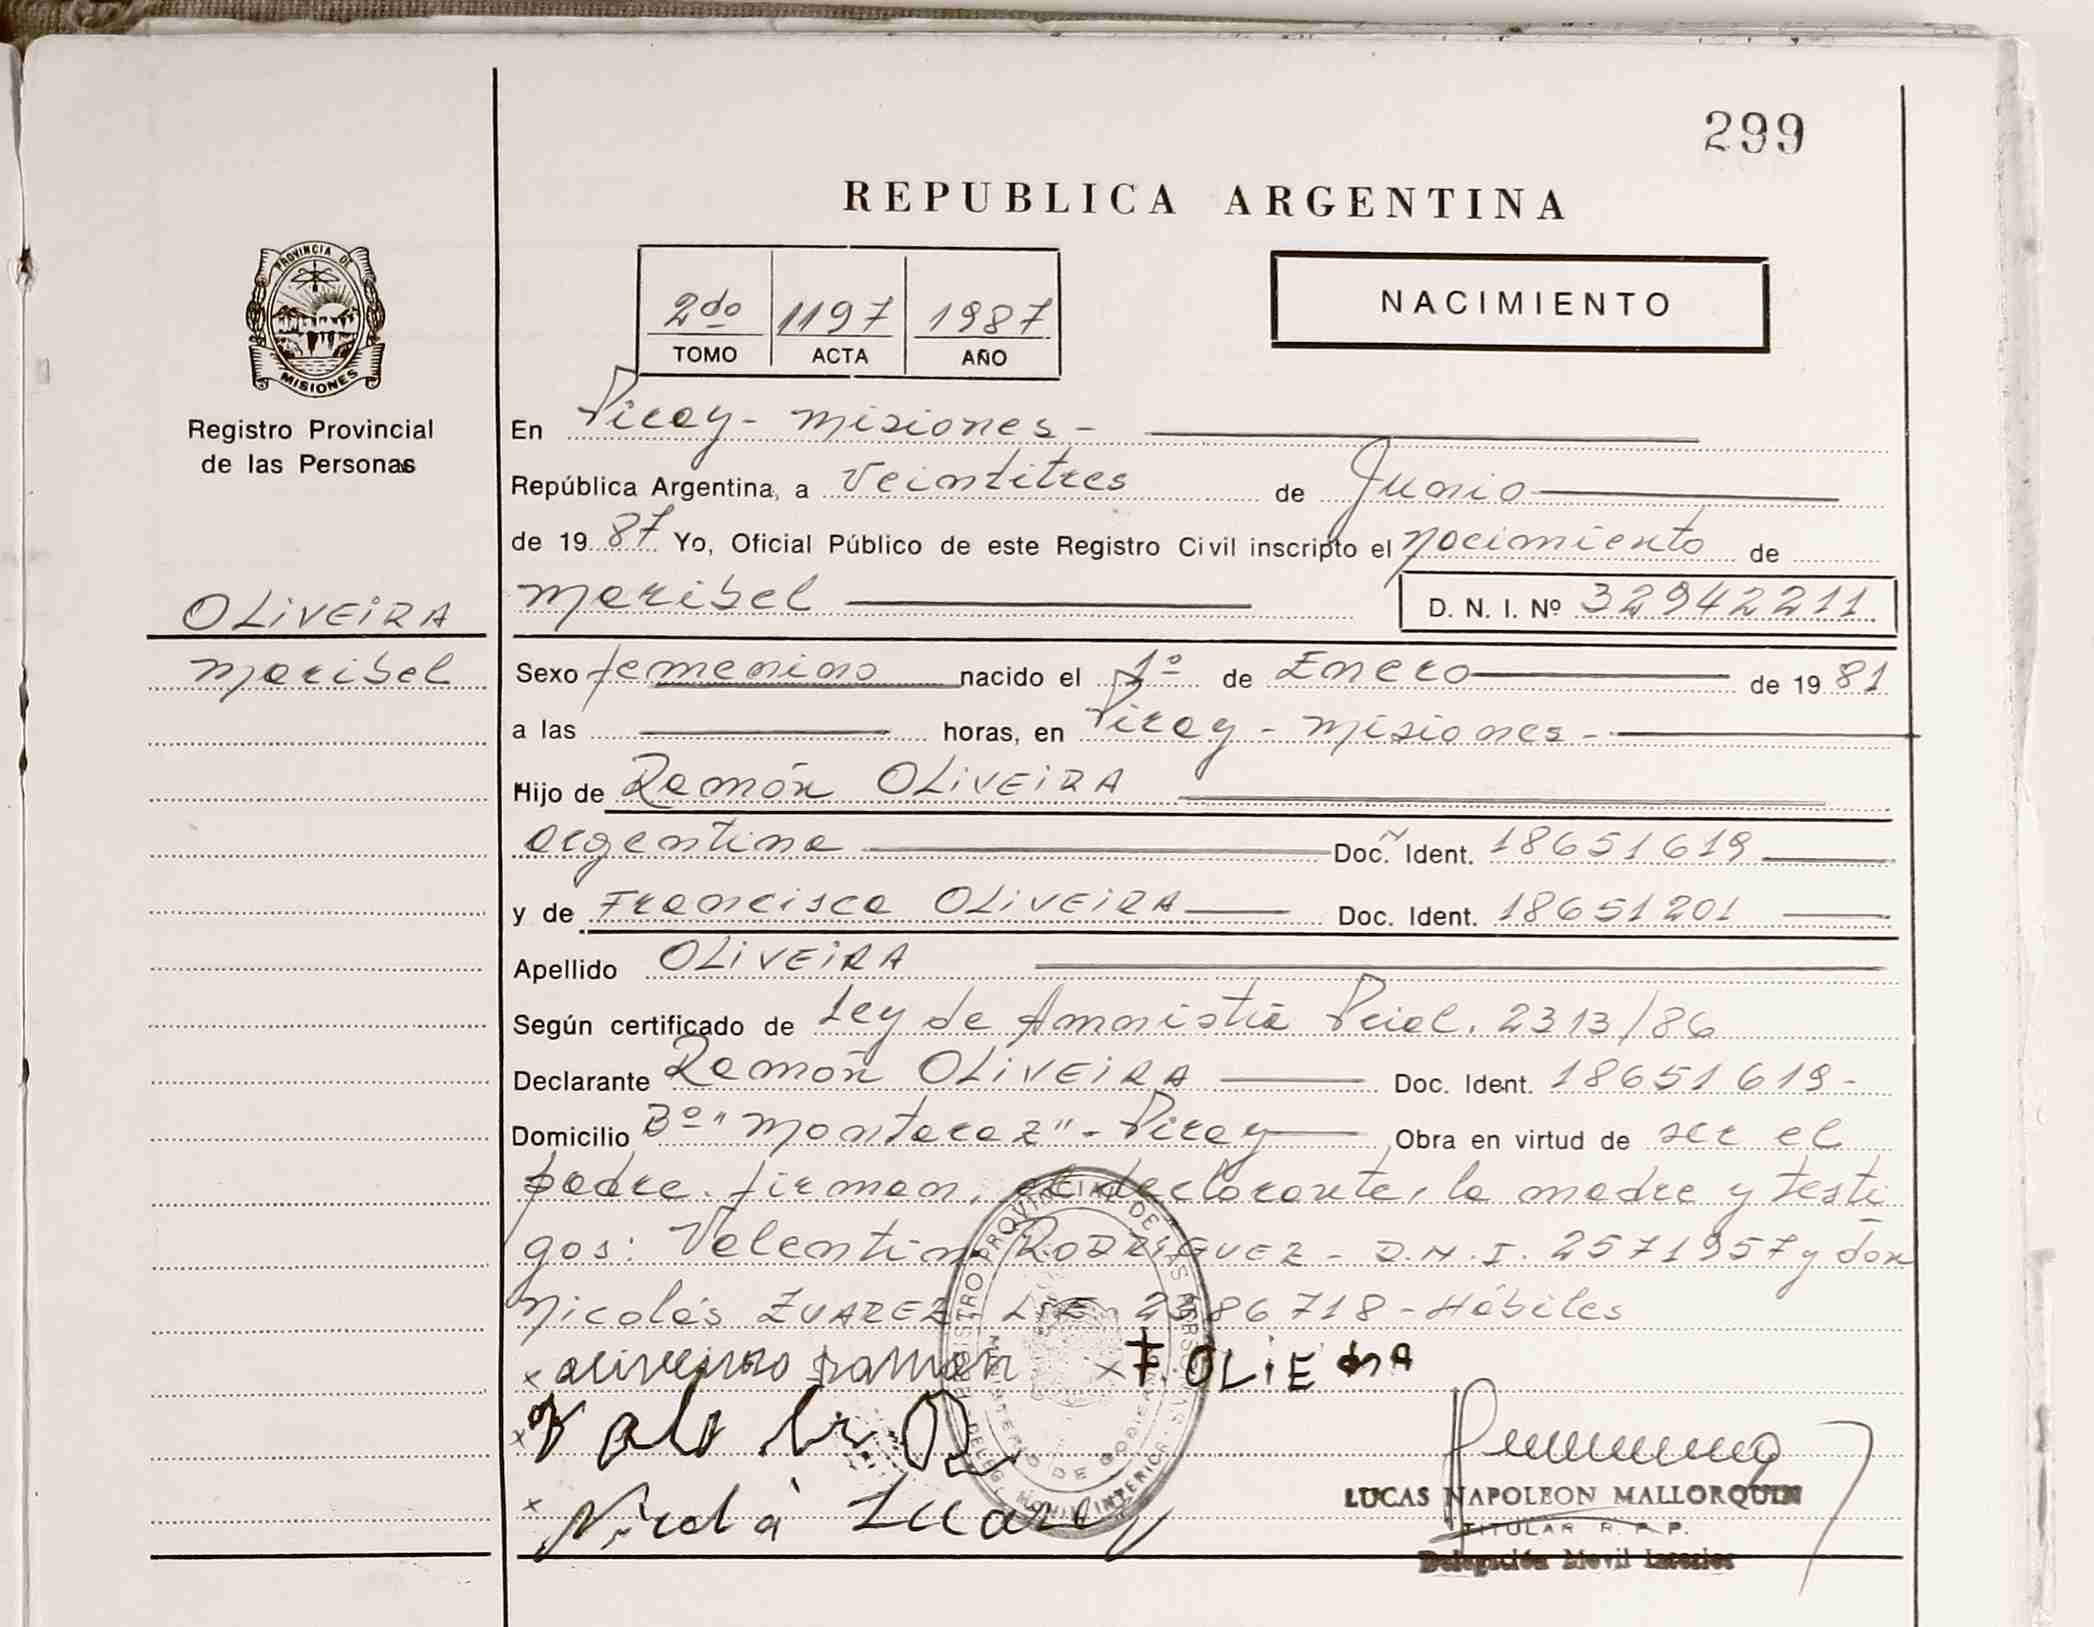 299
REPUBLICA ARGENTINA
PROVINCIA DE
MISIONES
2do 1197 1987
TOMO ACTA AÑO
NACIMIENTO
Registro Provincial
de las Personas
En Piray - misiones -
República Argentina, a veintitres de Junio
de 1987 Yo, Oficial Público de este Registro Civil inscripto el nacimiento de
OLIVEIRA
Marisel D. N. I. Nº 32942211
Marisel
Sexo femenino nacido el 1º de Enero de 1981
a las horas, en Piray - misiones -
Hijo de Ramón OLIVEIRA
argentina Doc. Ident. 18651619
y de Francisca OLIVEIRA Doc. Ident. 18651201
Apellido OLIVEIRA
Según certificado de Ley de Amnistía Pcial. 2313/86
Declarante Ramón OLIVEIRA Doc. Ident. 18651619-
Domicilio Bº "Montaraz" - Piray Obra en virtud de ser el
padre. firman, el declarante, la madre y testi
gos: Valentin RODRIGUEZ - D.N.I. 2571957 y don
Nicolás ZUAREZ L.E. 2586718 - Hábiles
x Ramon x F. OLIE
x
x
REGISTRO PROVINCIAL DE LAS PERSONAS
MINISTERIO DE GOBIERNO
LUCAS NAPOLEON MALLORQUIN
TITULAR R. P. P.
Delegación Movil Interior